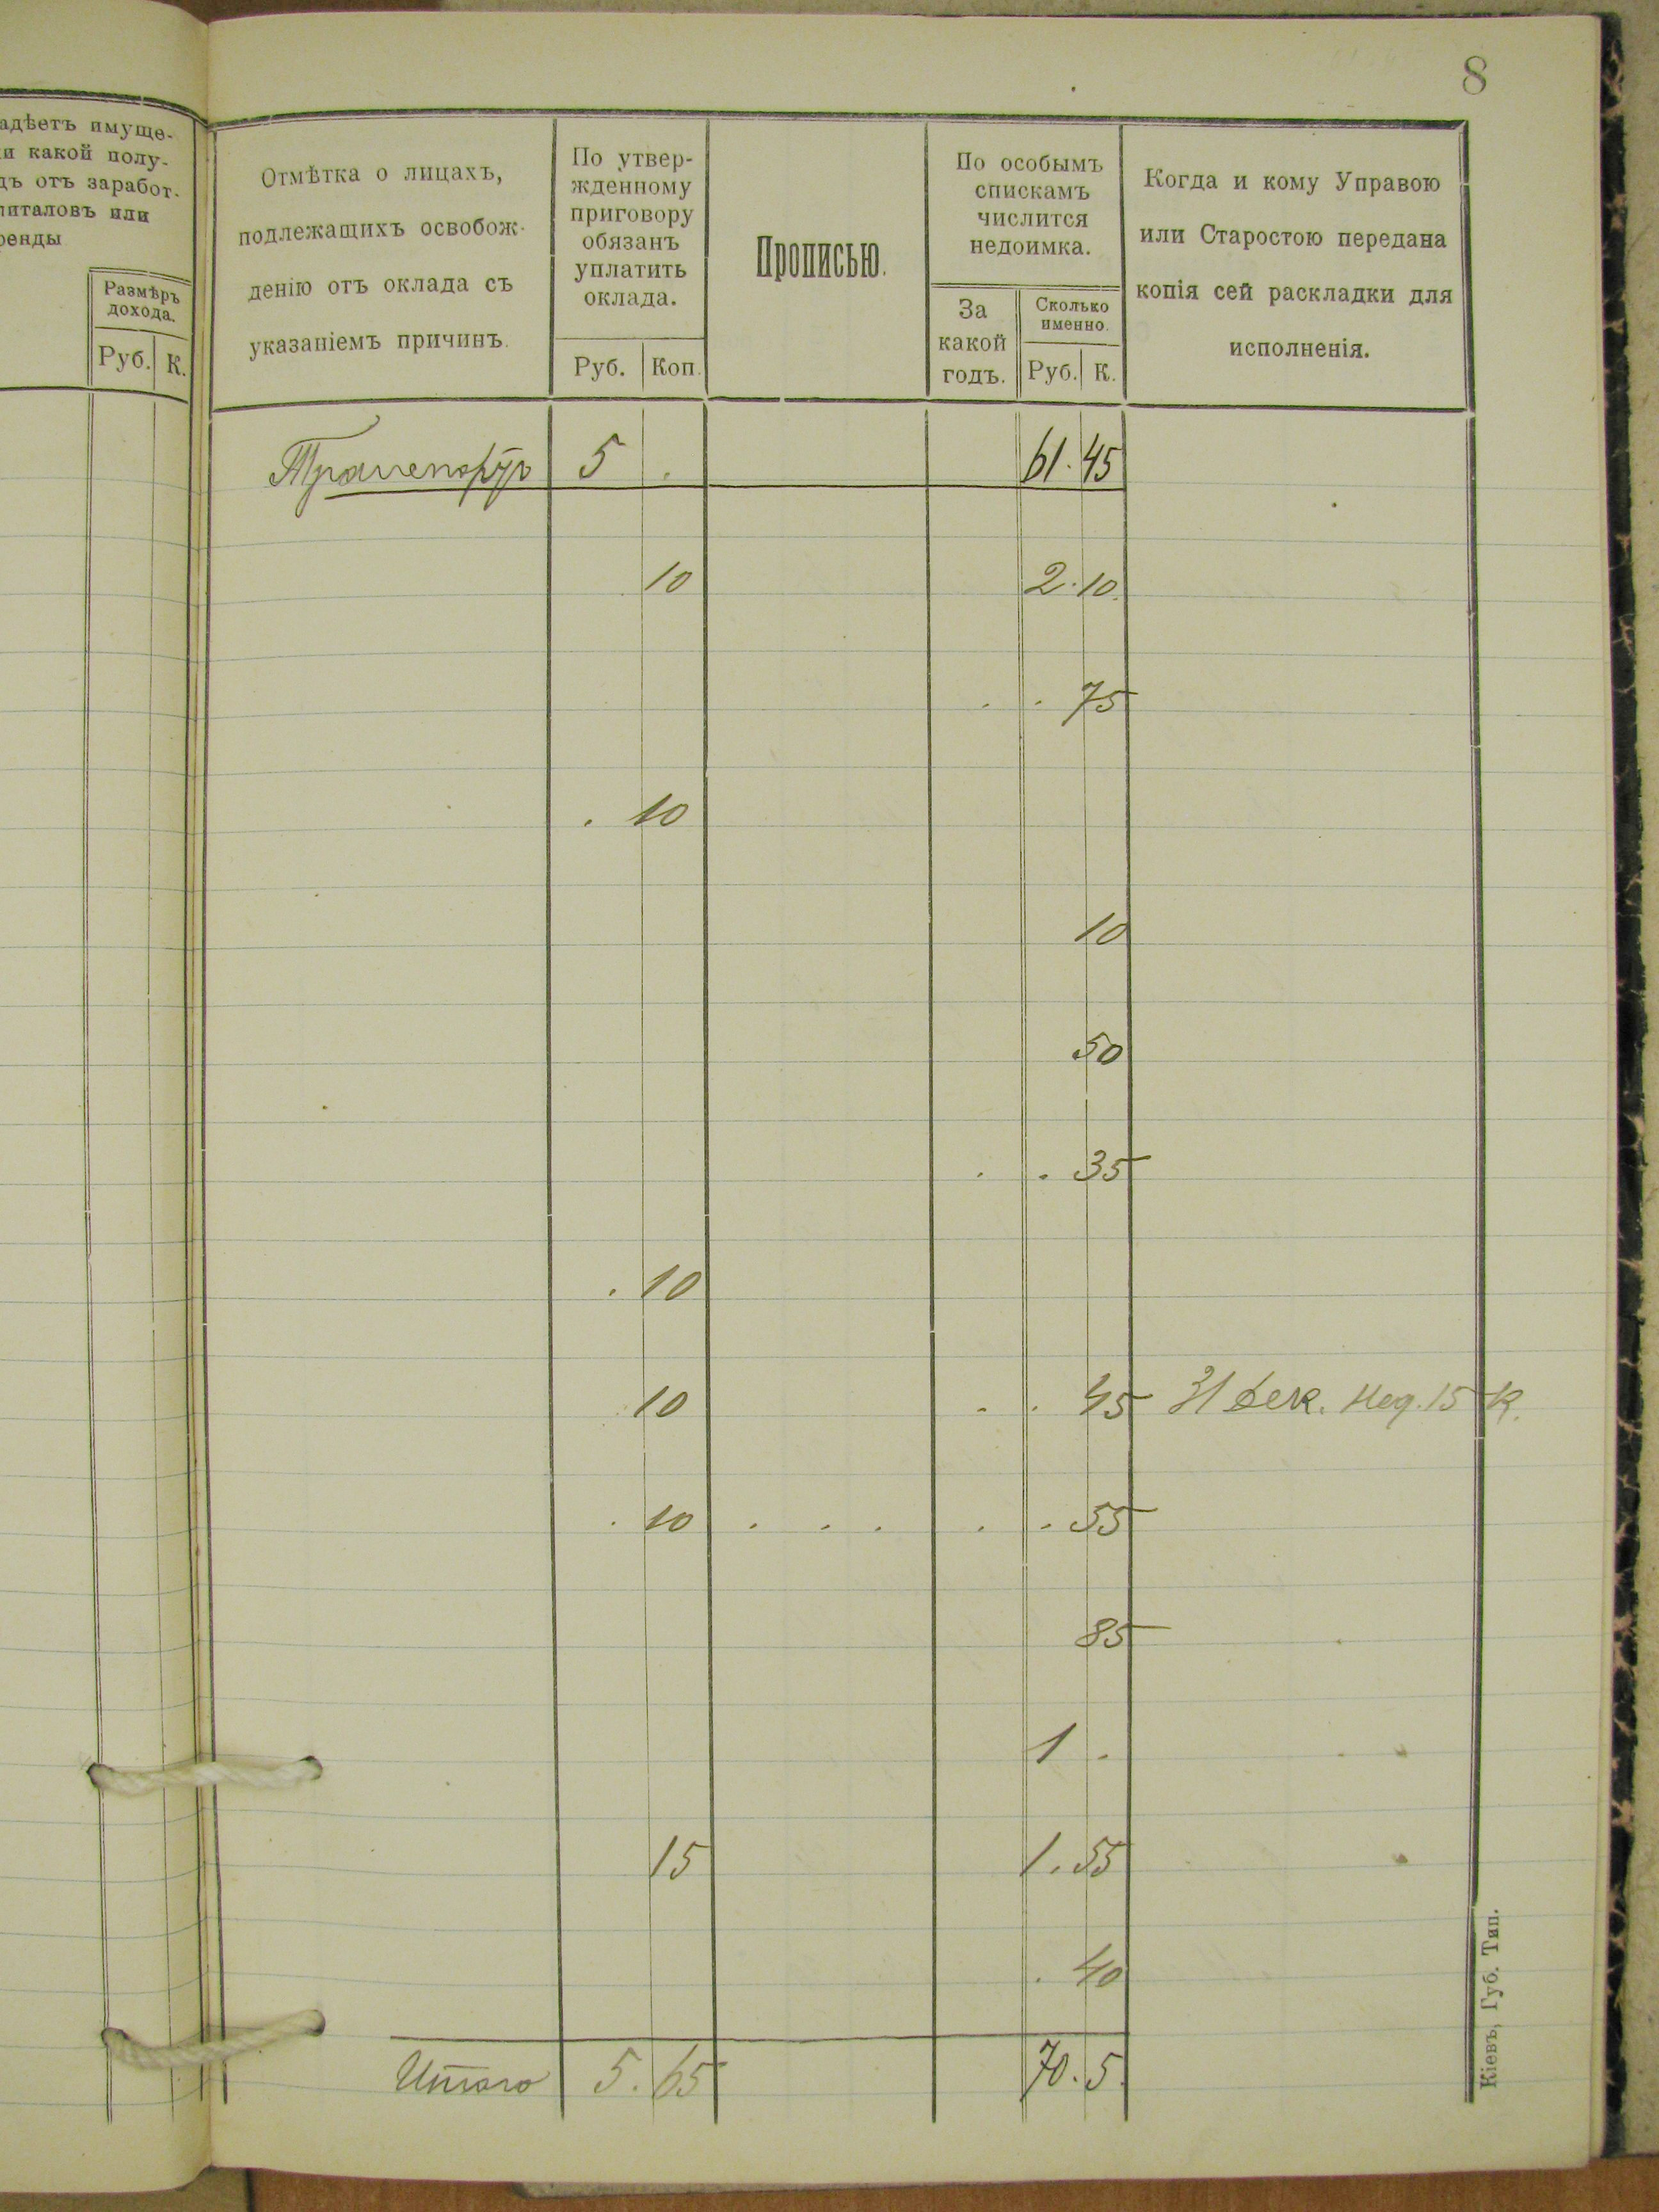 8
адѣетъ имуще-
и какой полу-
дъ отъ заработ.
питаловъ или
ренды
Размѣръ
дохода.
Руб. К.
Отмѣтка о лицахъ,
подлежащихъ освобож-
денію отъ оклада съ
указаніемъ причинъ.
По утвер-
жденному
приговору
обязанъ
уплатить
оклада.
Руб. Коп.
Прописью.
По особымъ
спискамъ
числится
недоимка.
За
какой
годъ.
Сколько
именно.
Руб. К.
Когда и кому Управою
или Старостою передана
копія сей раскладки для
исполненія.
Транспортъ 5 . 61. 45
10 2. 10.
. . 75
. 10
10
50
. . 35
. 10
10 . . 45 31 дек. Нед. 15 к.
. 10 . . . . . 55
85
1 .
15 1. 55
. 40
Итого 5. 65 70. 5.
Кіевъ, Губ. Тип.